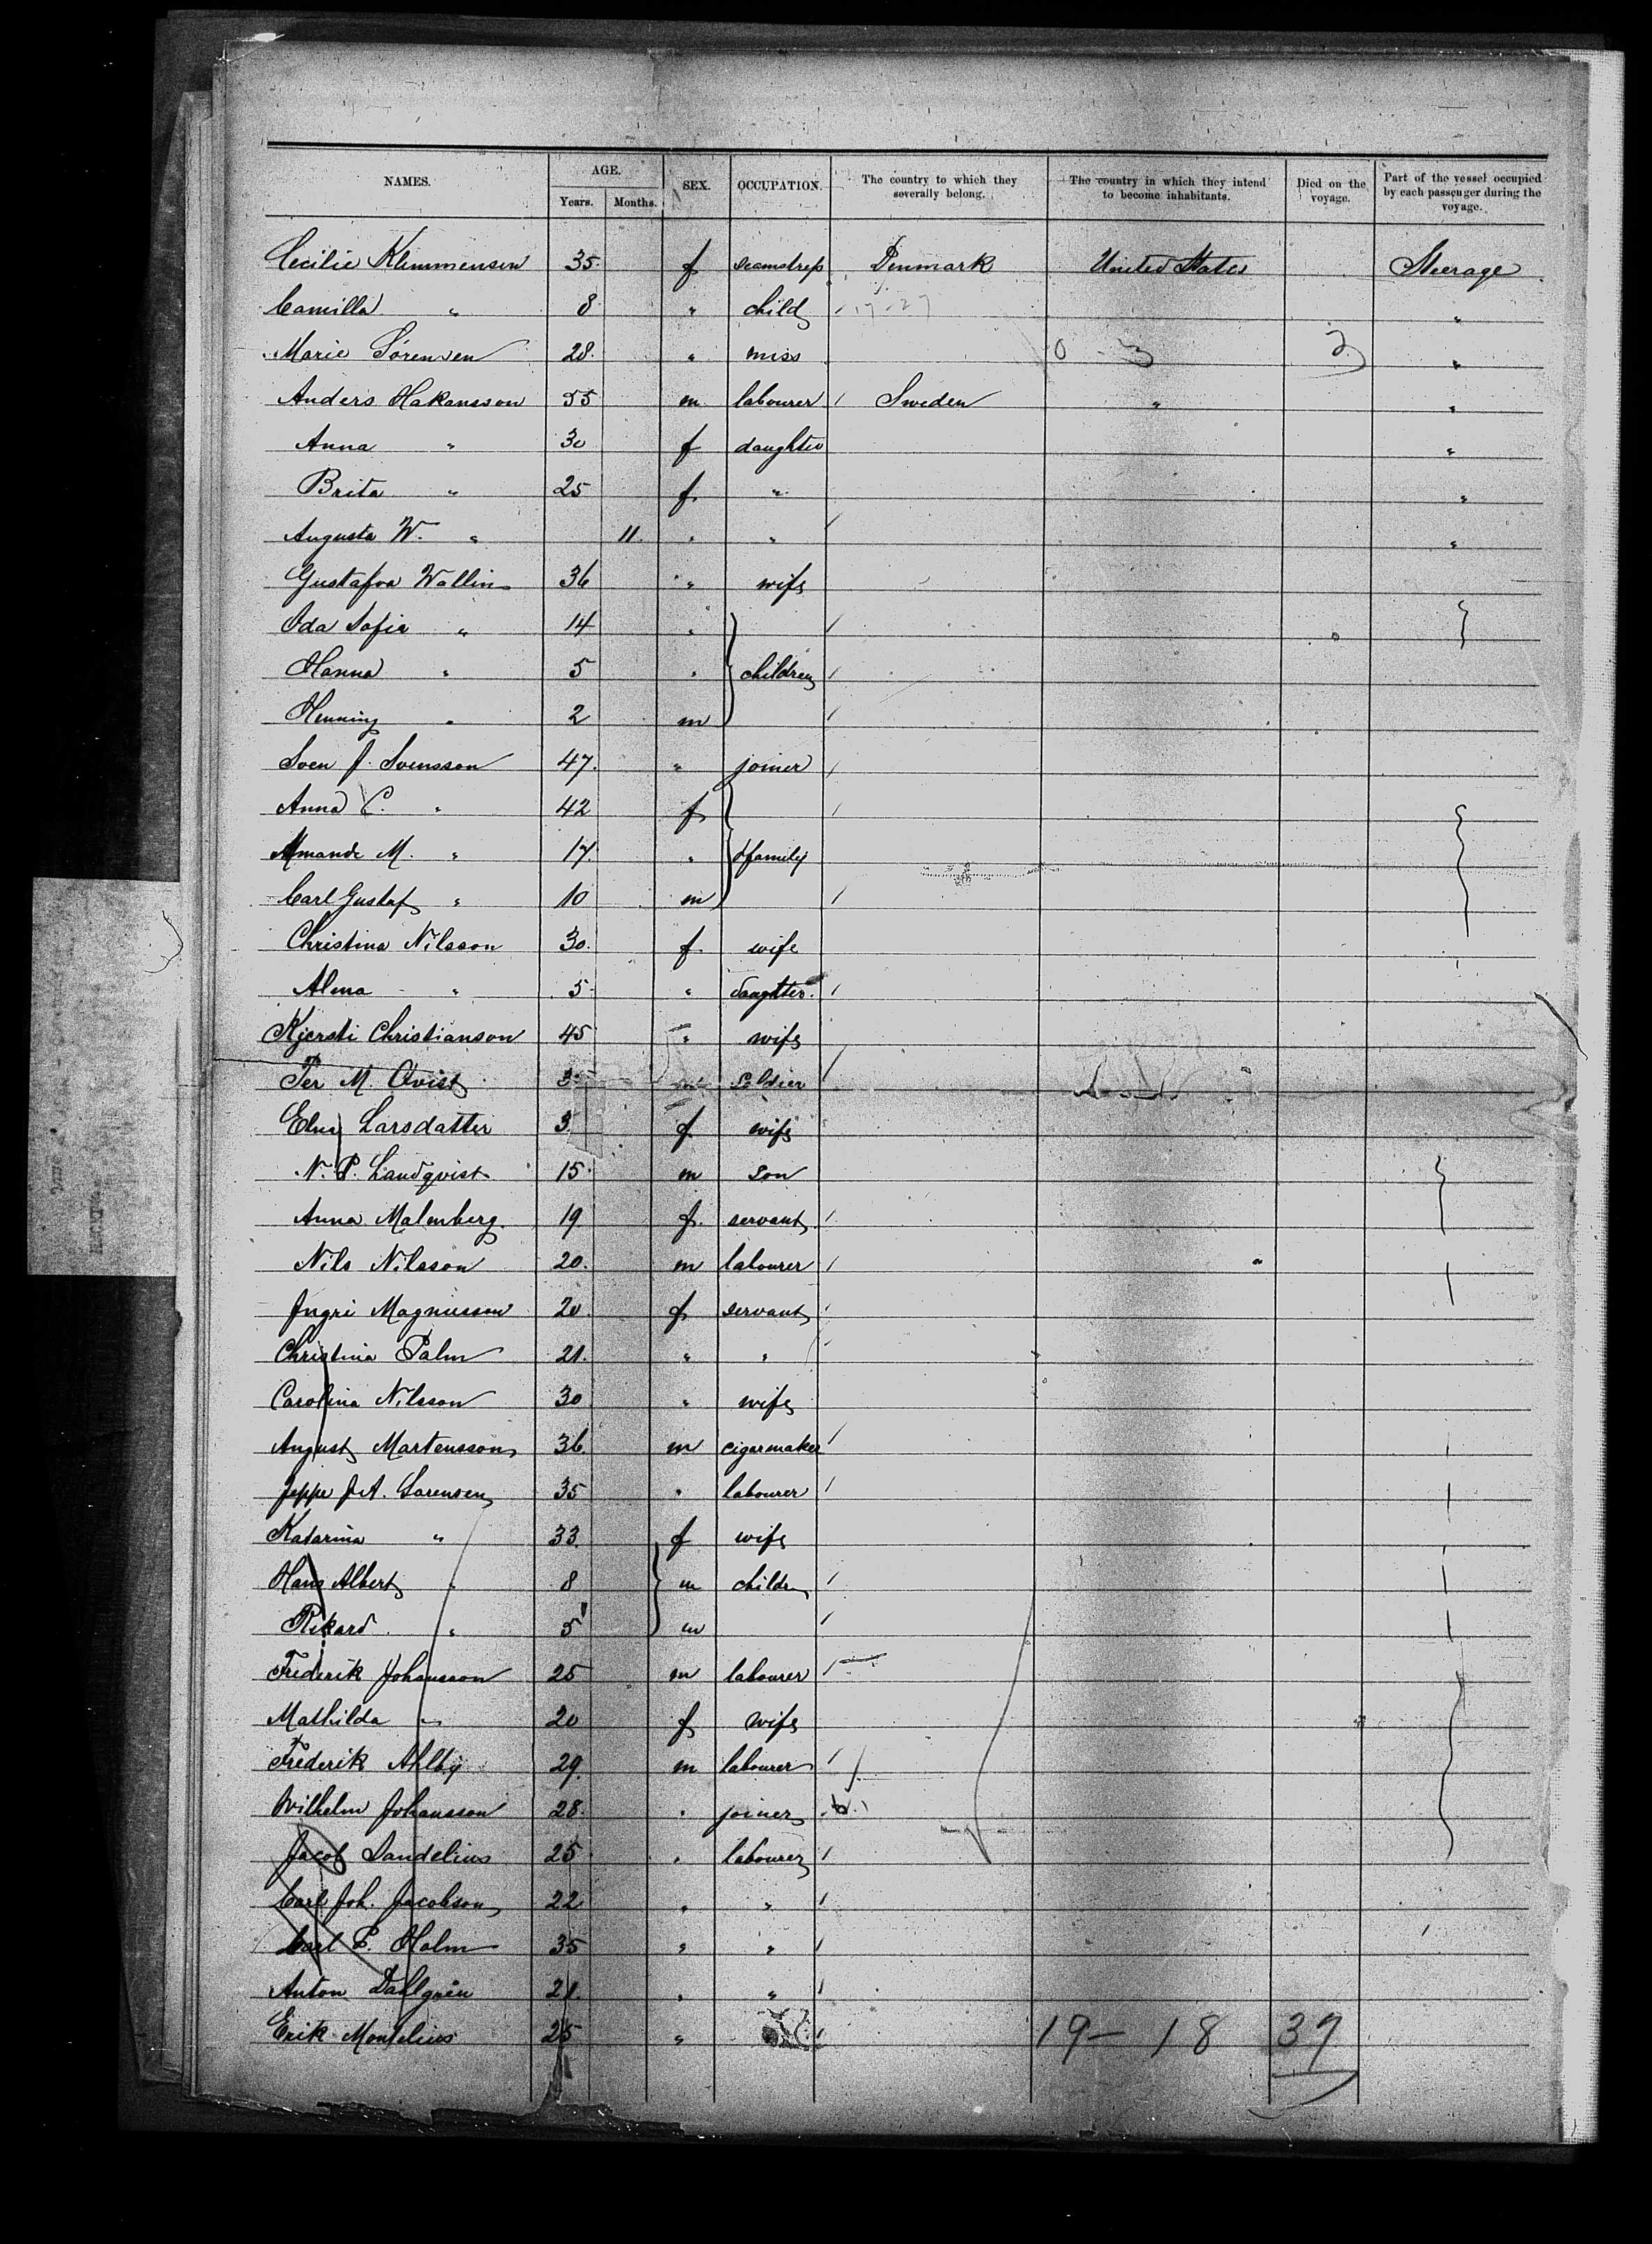 NAMES. AGE. SEX. OCCUPATION. The country to which they severally belong. The country in which they intend to become inhabitants. Died on the voyage. Part of the vessel occupied by each passenger during the voyage.
Years. Months.
Cecilie Klemmensen 35 f seamstress Denmark United States Steerage
Camilla " 8 " child "
Marie Sørensen 28 " miss 0 - 3 3 "
Anders Hakansson 55 m labourer Sweden " "
Anna " 30 f daughter "
Brita " 25 f " "
Augusta W. " 11 " " "
Gustafva Wallin 36 " wife
Ida Sofia " 14 "
Hanna " 5 " children
Henning " 2 m
Sven J. Svensson 47 " joiner
Anna C. " 42 f
Amanda M. " 17 " family
Carl Gustaf " 10 m
Christina Nilsson 30 f wife
Alma " 5 " daughter
Kjersti Christianson 45 " wife
Per M. Qvist m soldier
Elna Larsdatter f wife
N. P. Landqvist 15 m son
Anna Malmberg 19 f servant
Nils Nilsson 20 m labourer
Ingri Magnusson 20 f servant
Christina Palm 21 " "
Carolina Nilsson 30 " wife
August Martensson 36 m cigarmaker
Jeppe J. A. Sorensen 35 " labourer
Katarina " 33 f wife
Hans Albert " 8 m children
Rikard " 5 m
Frederik Johansson 25 m labourer
Mathilda " 20 f wife
Frederik Ahlby 29 m labourer
Wilhelm Johansson 28 " joiner
Jacob Sandelius 25 " labourer
Carl Joh. Jacobson 22 " "
Carl P. Holm 35 " "
Anton Dahlgren 21 " "
Erik Montelius 25 " 19 - 18 37